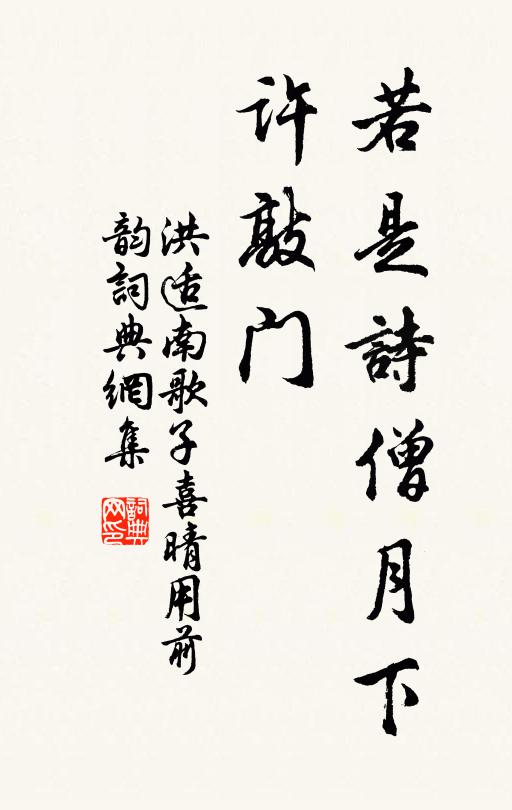 若是詩僧月下
許敲門
洪适南歌子喜晴用前
韵詞典網集
詞典
网印